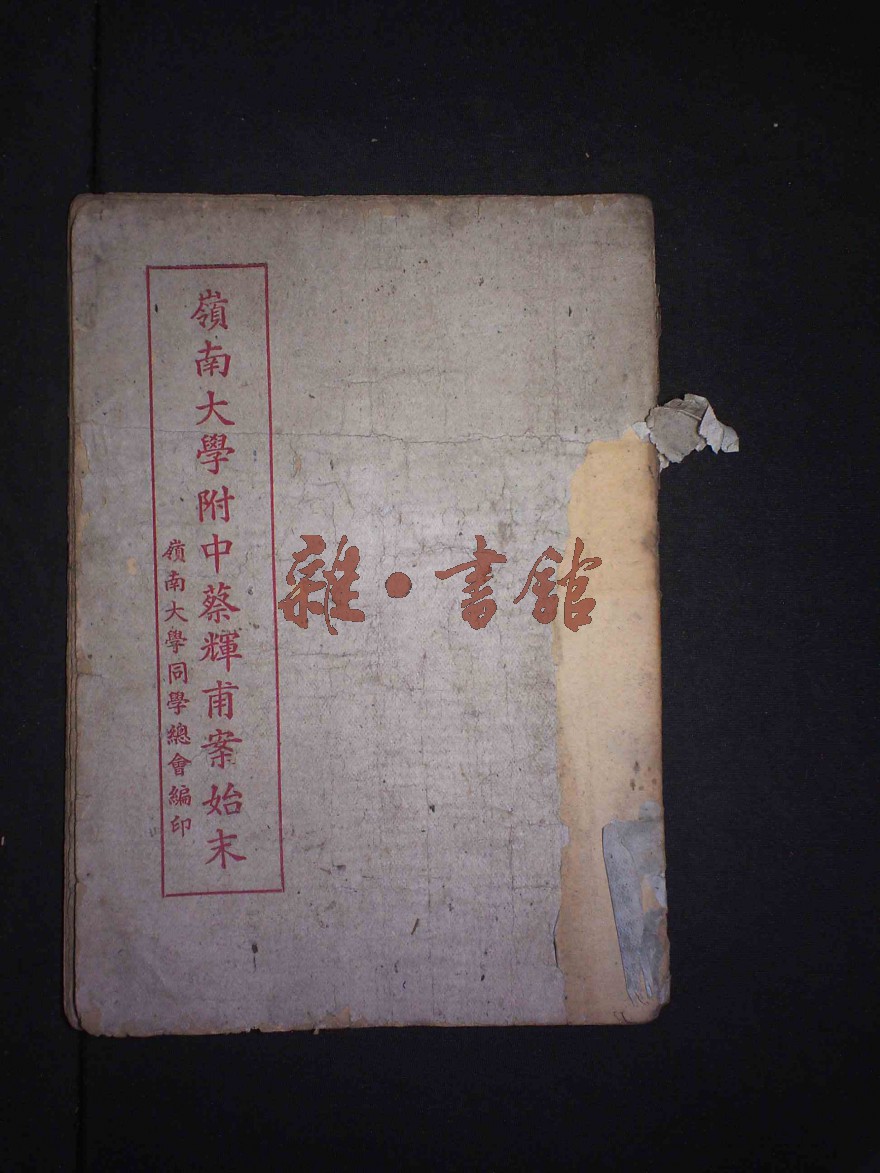 嶺南大學附中蔡輝甫案始末
嶺南大學同學總會編印
雜·書館